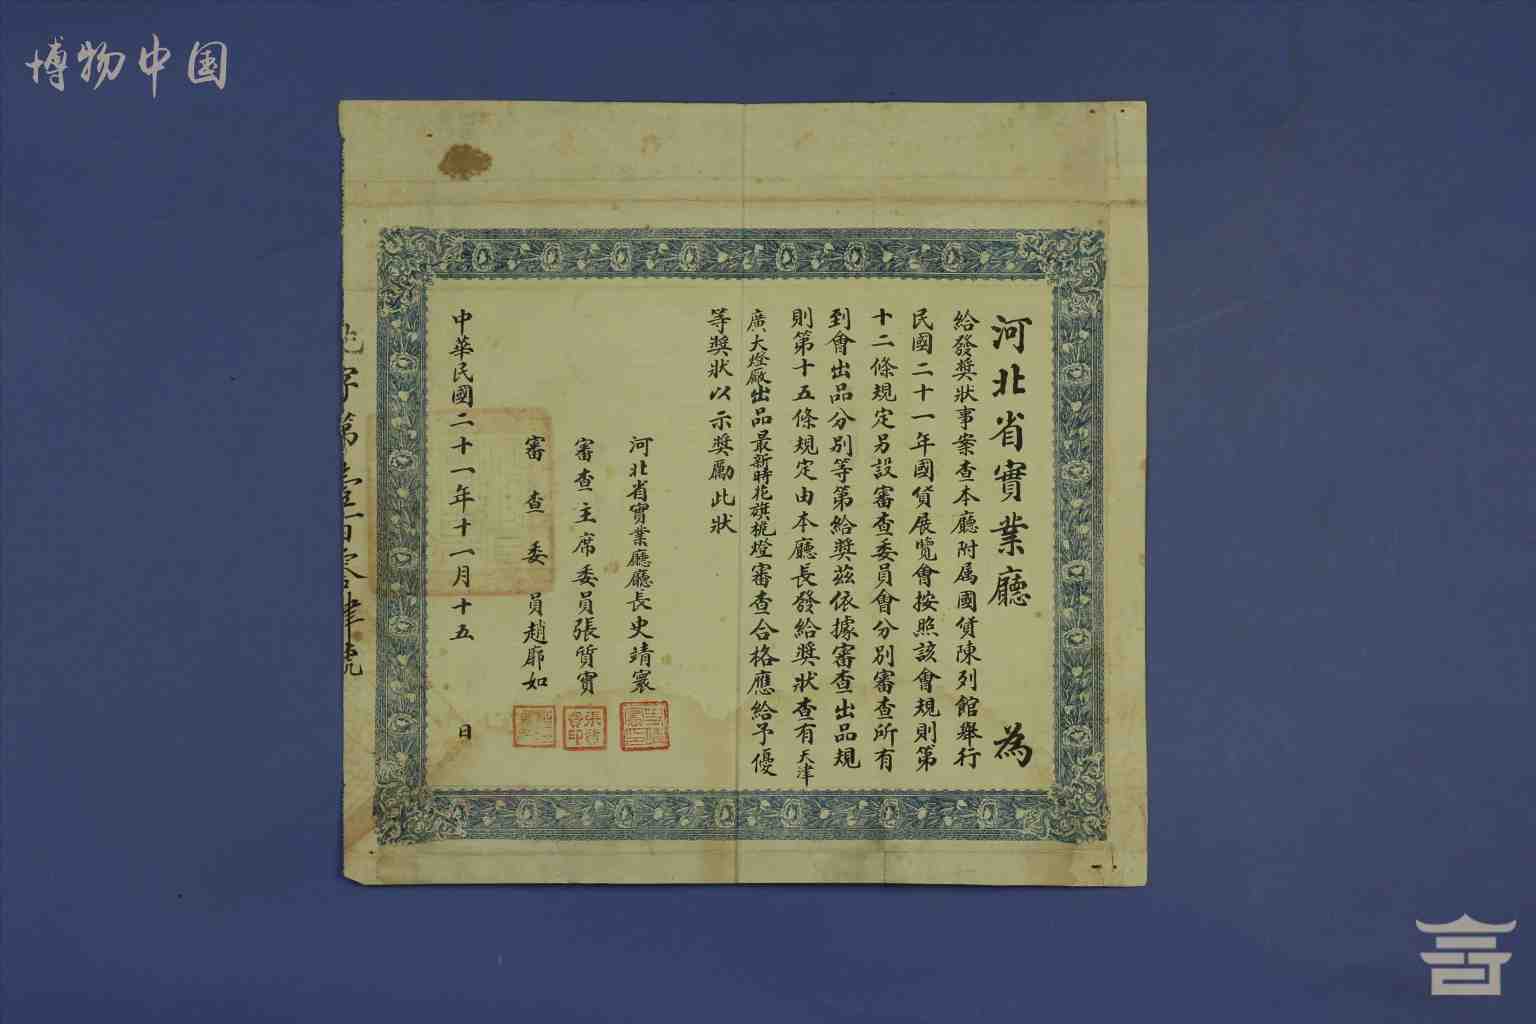 博物中国
河北省實業廳 為
給發獎狀事案查本廳附属國貨陳列館舉行
民國二十一年國貨展覽會按照該會規則第
十二條規定另設審查委員會分別審查所有
到會出品分別等第給獎茲依據審查出品規
則第十五條規定由本廳長發給獎狀查有天津
廣大燈厰出品最新時花旗桅燈審查合格應給予優
等獎狀以示獎勵此狀
河北省實業廳廳長史靖寰
審查主席委員張質實
審查委員趙廊如
中華民國二十一年十一月十五日
字第壹百零肆號